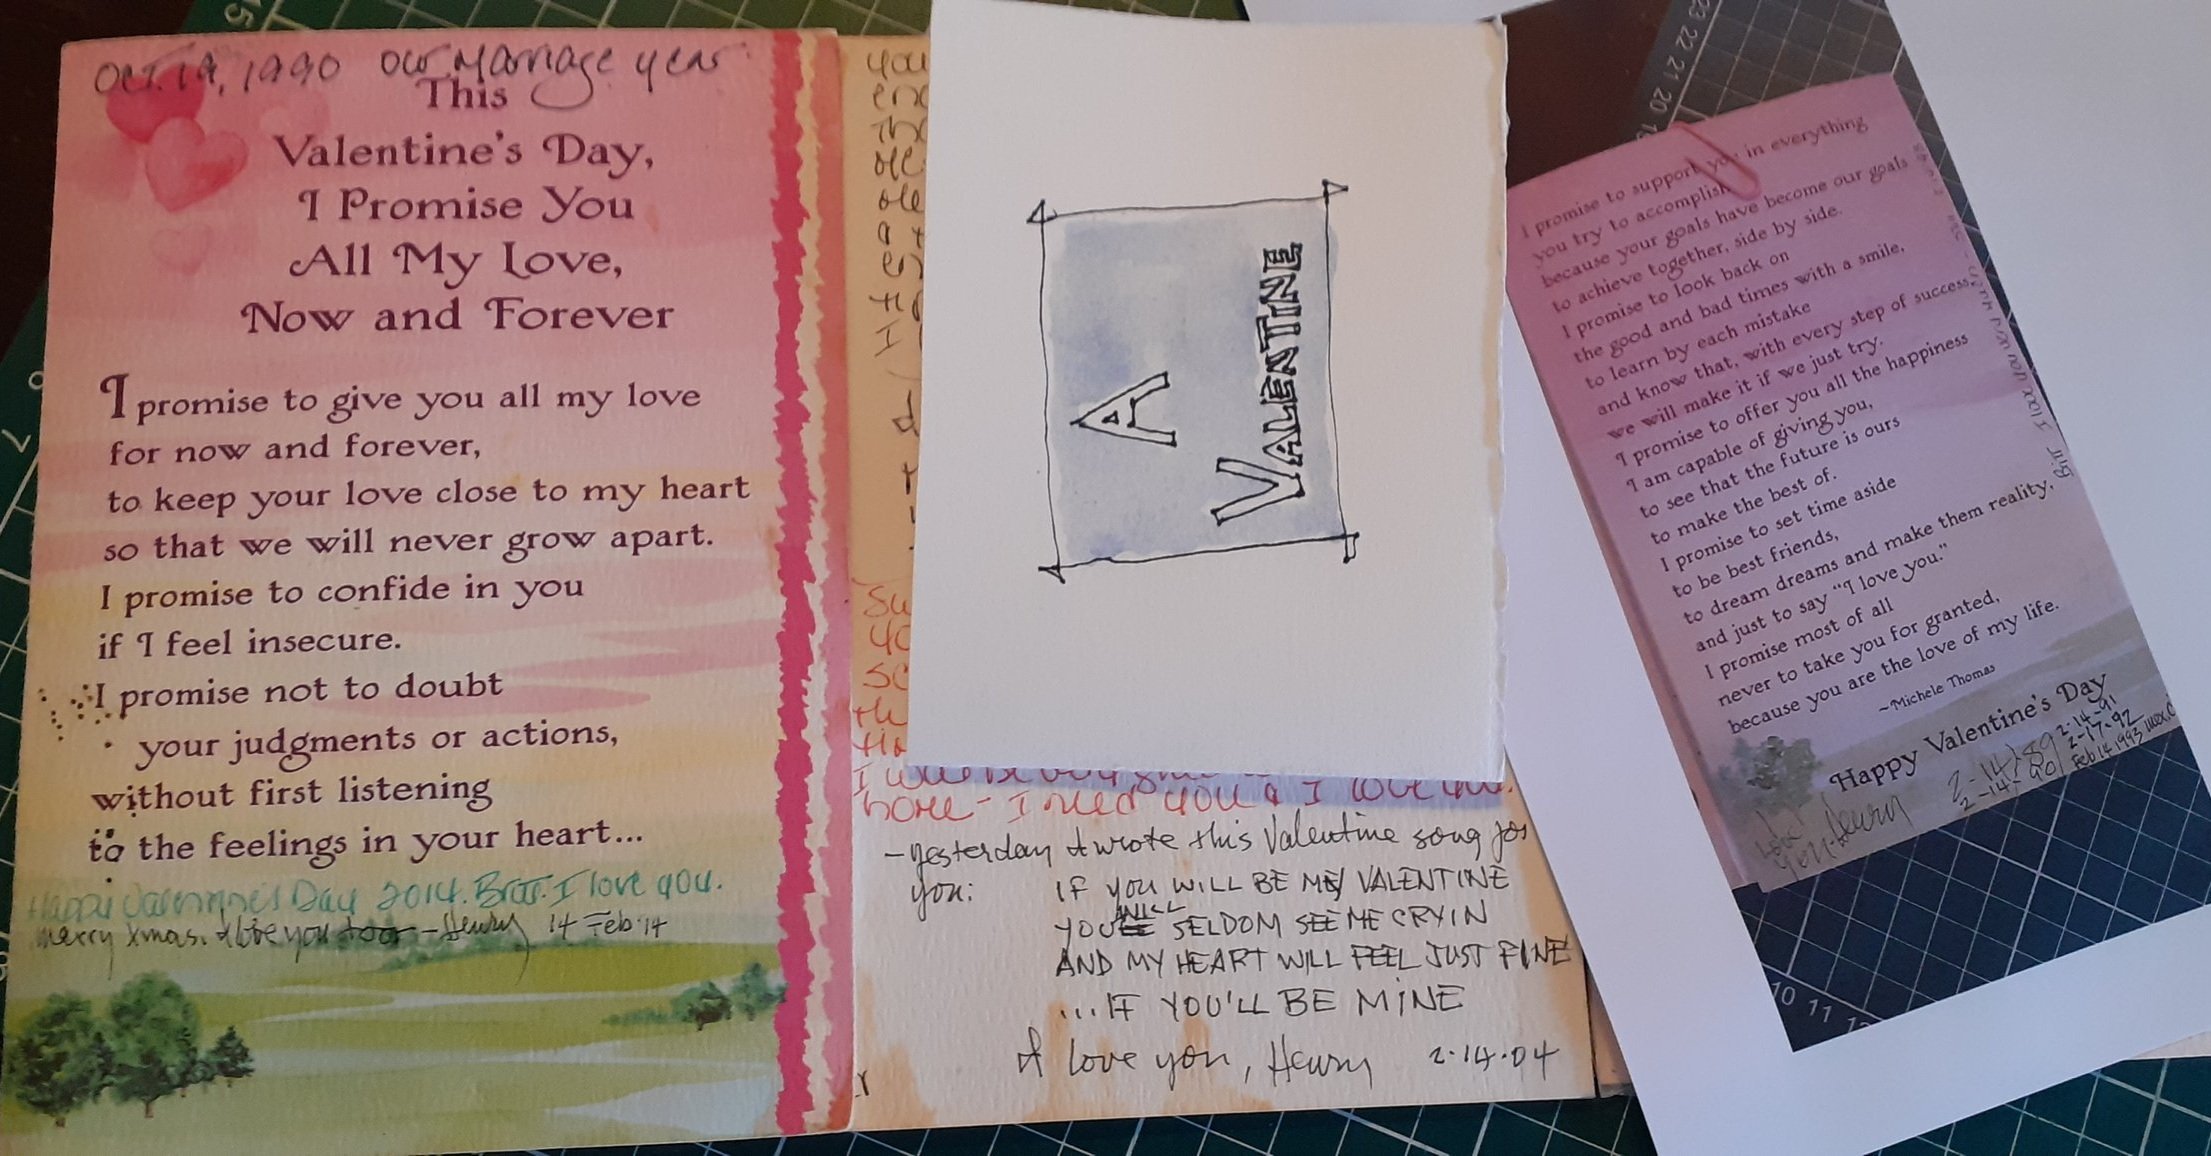 Oct. 19, 1990 our marriage year
This
Valentine's Day,
I Promise You
All My Love,
Now and Forever
I promise to give you all my love
for now and forever,
to keep your love close to my heart
so that we will never grow apart.
I promise to confide in you
if I feel insecure.
I promise not to doubt
your judgments or actions,
without first listening
to the feelings in your heart...
Happy Valentine's Day 2014. I love you.
merry Xmas. I love you - Henry 14 Feb '14
you
A
VALENTINE
home - I need you & I love you.
- yesterday I wrote this Valentine song for
you:
IF YOU WILL BE MY VALENTINE
YOU WILL SELDOM SEE ME CRYIN
AND MY HEART WILL FEEL JUST FINE
...IF YOU'LL BE MINE
I love you, Henry 2.14.04
I promise to support you in everything
you try to accomplish
because your goals have become our goals
to achieve together, side by side.
I promise to look back on
the good and bad times with a smile,
to learn by each mistake
and know that, with every step of success,
we will make it if we just try.
I promise to offer you all the happiness
I am capable of giving you,
to see that the future is ours
to make the best of.
I promise to set time aside
to be best friends,
to dream dreams and make them reality,
and just to say "I love you."
I promise most of all
never to take you for granted,
because you are the love of my life.
~Michele Thomas
Happy Valentine's Day
2-14-89 2-14-91
2-14-90 2-17-92
Feb 14 1993
you. Henry
23 22 21 20
10 11
15
7